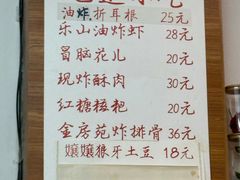 油炸折耳根 25元
乐山油炸虾 28元
冒脑花儿 20元
现炸酥肉 30元
红糖糍粑 20元
金房苑炸排骨 36元
孃孃狼牙土豆 18元